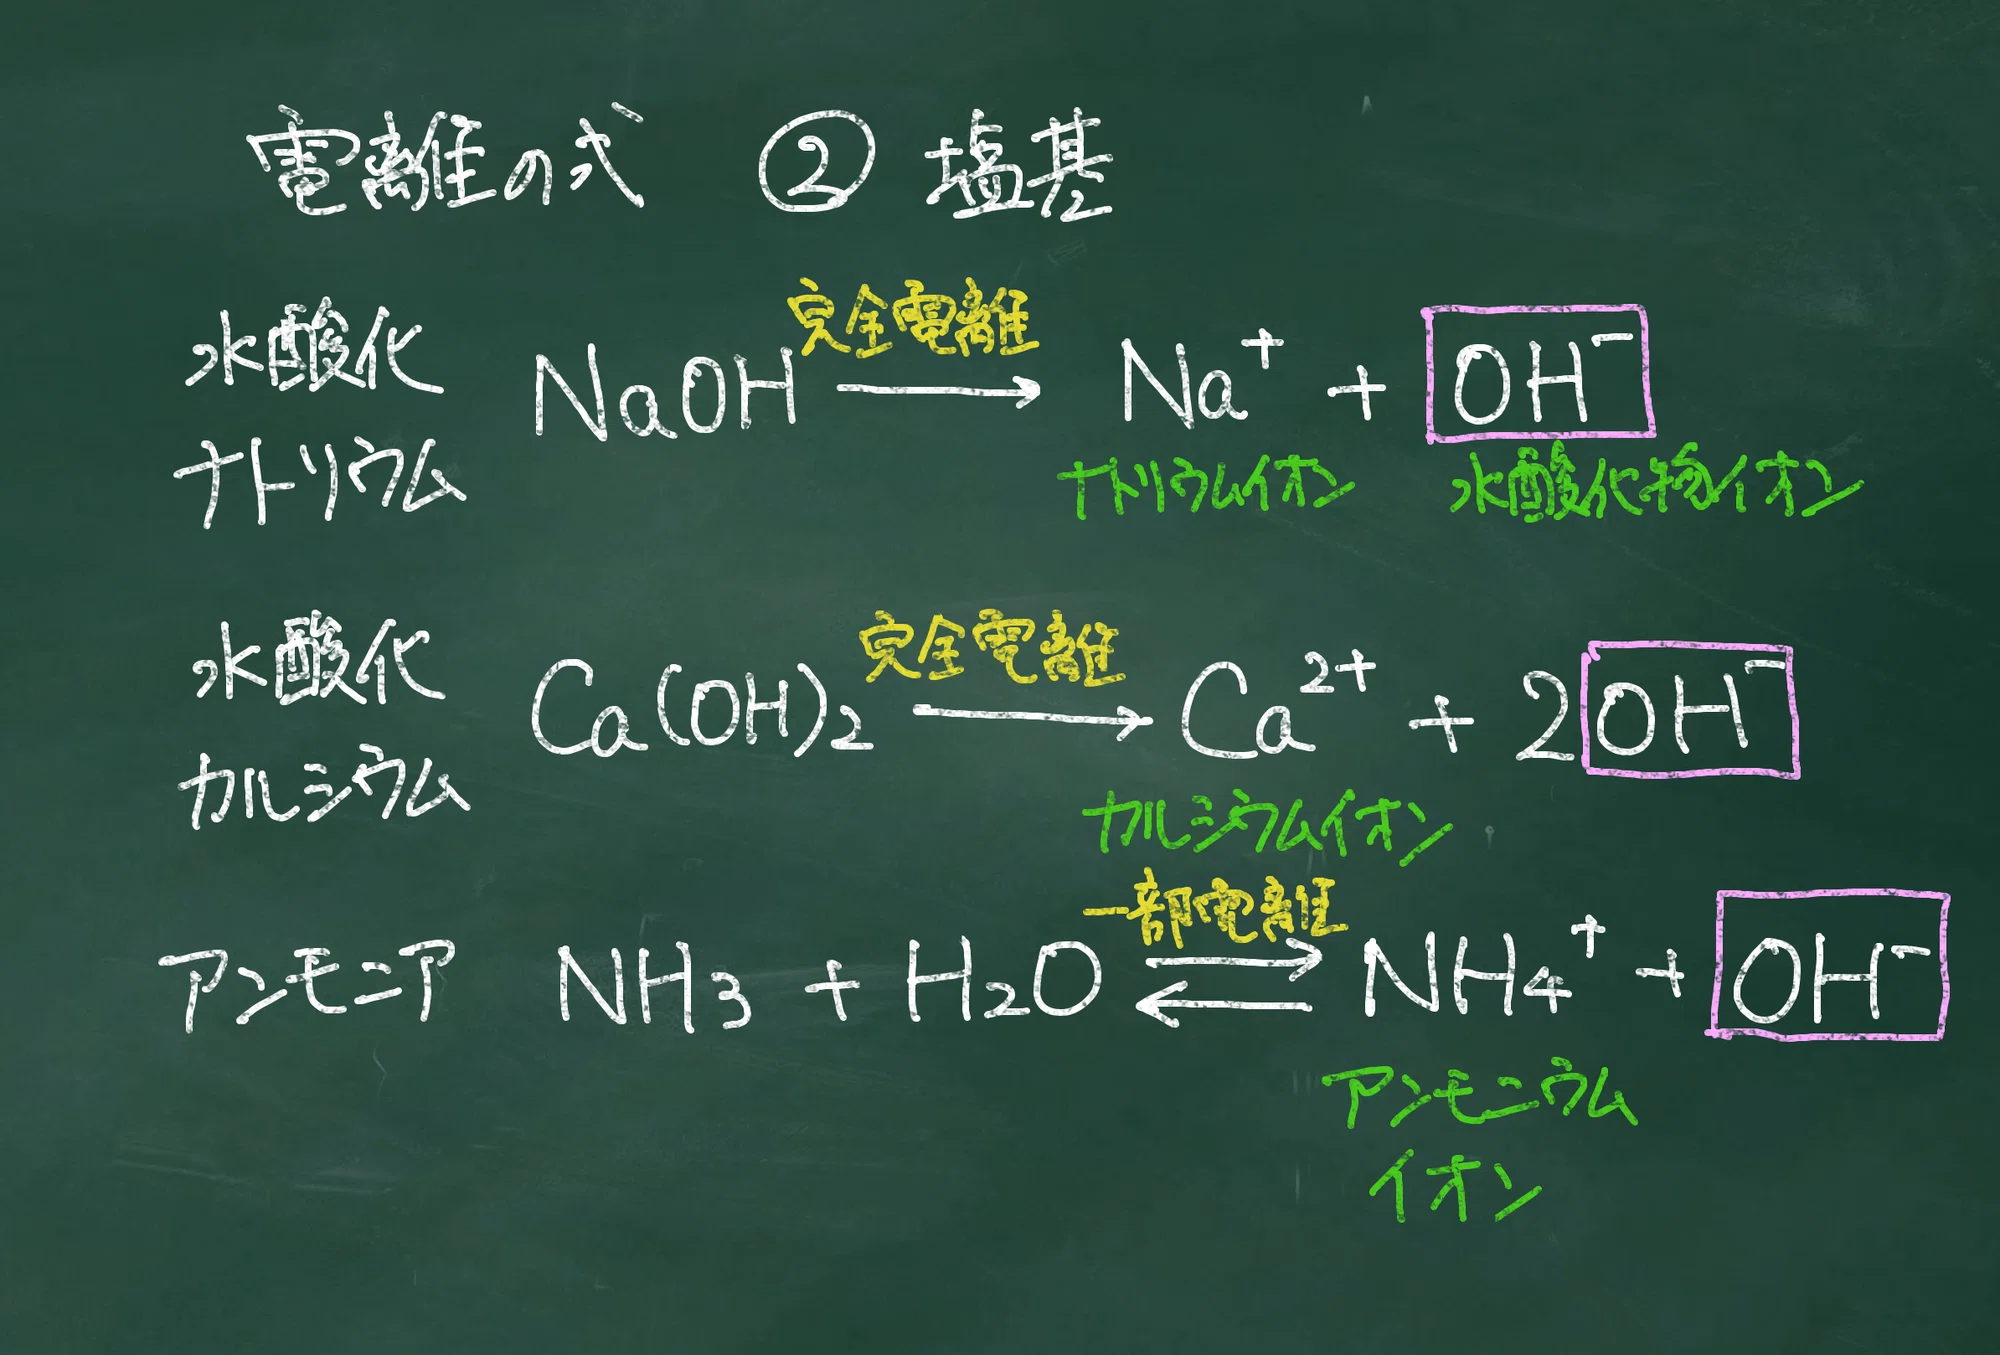 電離の式 ② 塩基
完全電離
水酸化
NaOH → Na⁺ + OH⁻
ナトリウム
ナトリウムイオン 水酸化物イオン
完全電離
水酸化
Ca(OH)₂ → Ca²⁺ + 2OH⁻
カルシウム
カルシウムイオン
一部電離
アンモニア NH₃ + H₂O ⇄ NH₄⁺ + OH⁻
アンモニウム
イオン